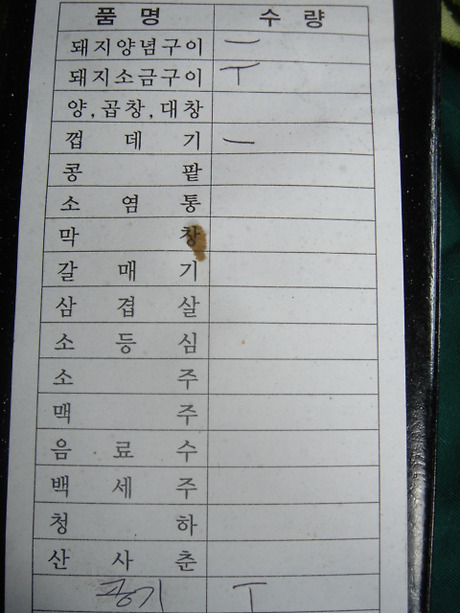 품 명 수 량
돼지양념구이 一
돼지소금구이 T
양,곱창,대창
껍 데 기 一
콩 팥
소 염 통
막 창
갈 매 기
삼 겹 살
소 등 심
소 주
맥 주
음 료 수
백 세 주
청 하
산 사 춘
공기 T